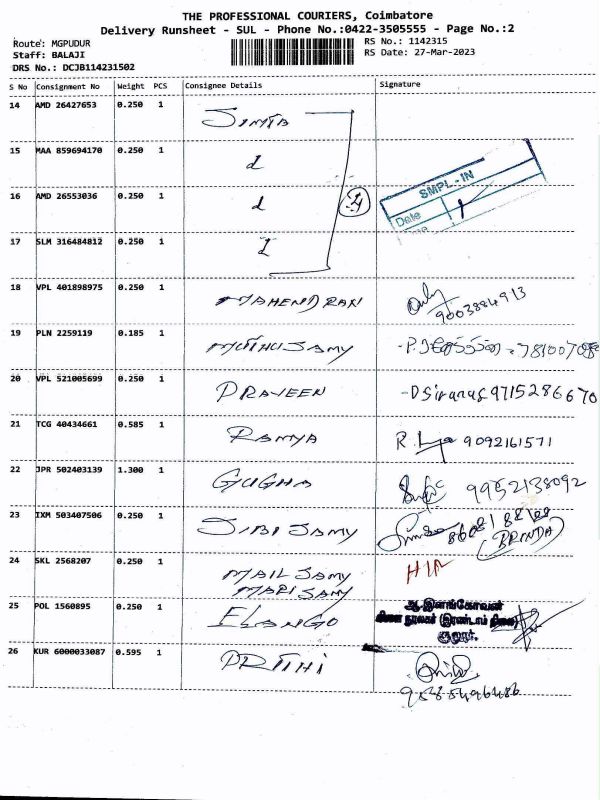 THE PROFESSIONAL COURIERS, Coimbatore
Delivery Runsheet - SUL - Phone No.:0422-3505555 - Page No.:2
Route: MGPUDUR
RS No.: 1142315
Staff: BALAJI
RS Date: 27-Mar-2023
DRS No.: DCJB114231502
S No Consignment No Weight PCS Consignee Details Signature
14 AMD 26427653 0.250 1
15 MAA 859694170 0.250 1
SMPL-IN
16 AMD 26553036 0.250 1
Date
17 SLM 316484812 0.250 1
18 VPL 401898975 0.250 1 MAHENDRAN
9003884913
19 PLN 2259119 0.185 1 MUTHUSAMY
20 VPL 521005699 0.250 1 PRAVEEN 9715286670
21 TCG 40434661 0.585 1 RAMYA R. 9092161571
22 JPR 502403139 1.300 1 GUGHA 9952138092
23 IXM 503407506 0.250 1 SIBI SAMY
(BRINDA)
24 SKL 2568207 0.250 1 MAIL SAMY
MARI SAMY
25 POL 1560895 0.250 1 ELANGO ஆ.இளங்கோவன்
கிளை நூலகர் (இரண்டாம் நிலை)
26 KUR 6000033087 0.595 1 PRITHI